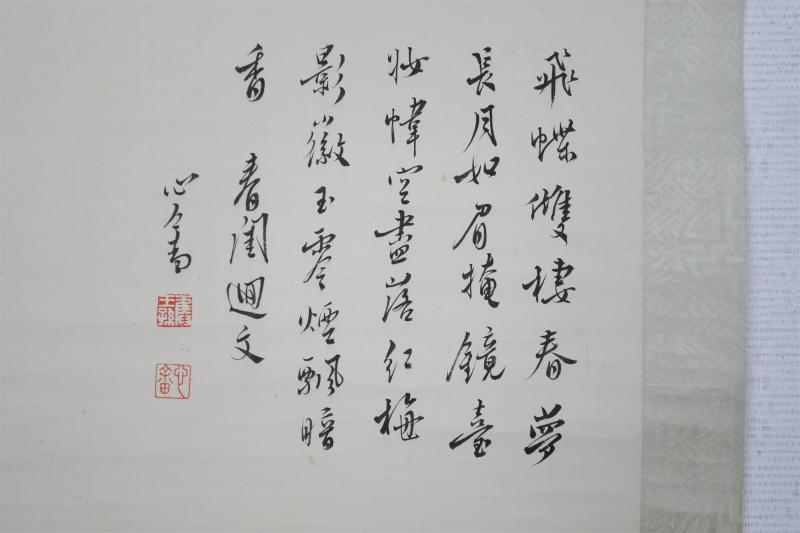 飛蝶雙棲春夢
長月如眉掩鏡臺
妝幃空盡落紅梅
影徽玉零煙飄暗
香　春閨迴文
心畬
舊王孫
心畬